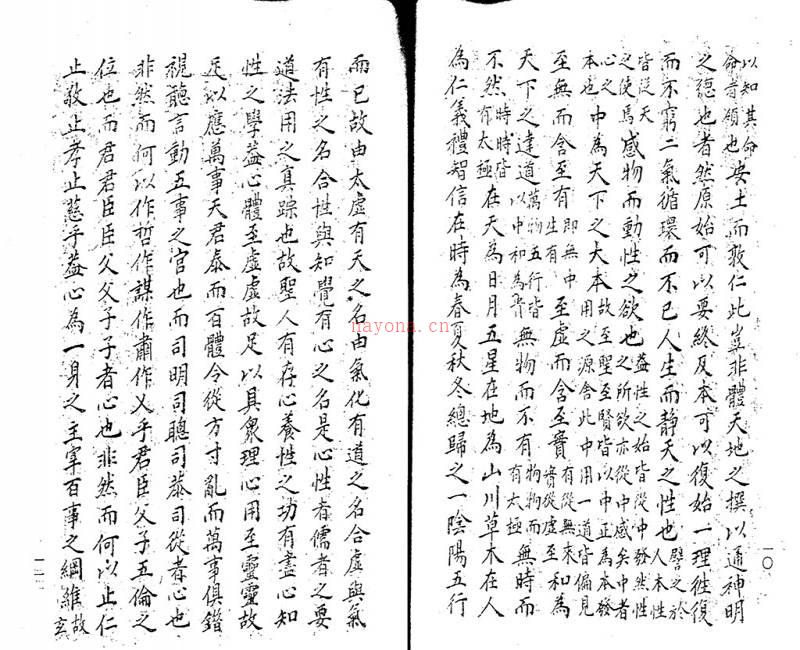 以知其命
命者頒也安土而敦仁此豈非體天地之撰以通神明
之德也者然原始可以要終反本可以復始一理徃復
而不窮二氣循環而不已人生而静天之性也譬之於人本性
皆從天之使焉感物而動性之欲也益性之始皆從中發然性之所欲亦從中感矣中者
心之本也中為天下之大本故至聖至賢皆以中正為本發用之源舍此中用一道皆偏見
至無而含至有即無中生有至虛而含至實有從無來實從虛至和為
天下之達道萬物五行皆以中和為貴無物而不有物物而有太極無時而
不然時時皆有太極在天為日月五星在地為山川草木在人
為仁義禮智信在時為春夏秋冬總歸之一陰陽五行
一〇
而已故由太虛有天之名由氣化有道之名合虛與氣
有性之名合性與知覺有心之名是心性者儒者之要
道法用之真踪也故聖人有存心養性之功有盡心知
性之學益心體至虛虛故足以具衆理心用至靈靈故
足以應萬事天君泰而百體令從方寸亂而萬事俱錯
視聽言動五事之官也而司明司聰司恭司從者心也
非然而何以作哲作謀作肅作乂乎君臣父子五倫之
位也而君君臣臣父父子子者心也非然而何以止仁
止敬止孝止慈乎益心為一身之主宰百事之綱維故玄
一二
nayona.cn